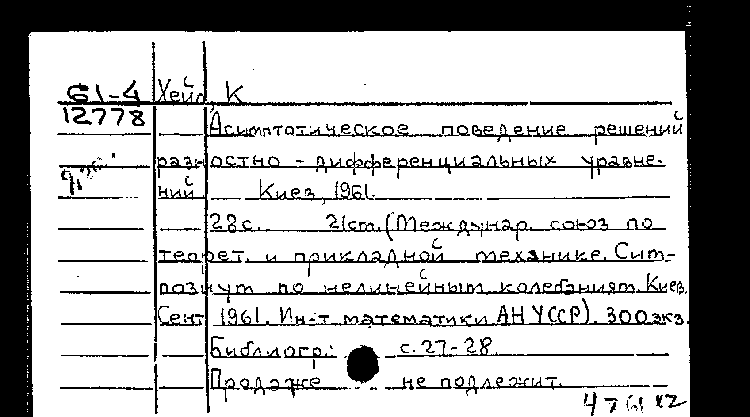 61-4 Хейл, К
12778
Асимптотическое поведение решений
разностно-дифференциальных уравне-
ний Киев, 1961.
28с. 21см. (Междунар. союз по
теорет. и прикладной механике. Сим-
позиум по нелинейным колебаниям. Киев
Сент 1961. Ин-т математики АН УССР). 300экз.
Библиогр.: с.27-28.
Продаже не подлежит.